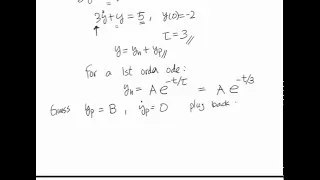 3ẏ+y = 5, y(0)=-2
τ = 3
y = yₕ + yₚ
For a 1st order ode:
yₕ = A e^(-t/τ) = A e^(-t/3)
Guess yₚ = B, ẏₚ = 0 plug back.